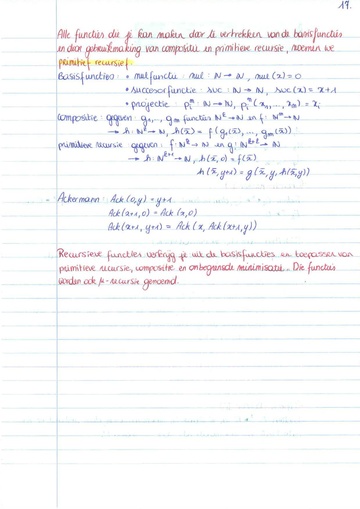 17.
Alle functies die je kan maken door te vertrekken van de basisfuncties
en door gebruikmaking van compositie en primitieve recursie, noemen we
primitief recursief.
Basisfuncties: • nulfunctie : nul : ℕ → ℕ, nul (x) = 0
• successorfunctie : suc : ℕ → ℕ, suc (x) = x+1
• projectie : pᵢᵐ : ℕ → ℕ, pᵢᵐ (x₁, ..., xₘ) = xᵢ
compositie : gegeven : g₁, ..., gₘ functies ℕᵏ → ℕ en f : ℕᵐ → ℕ
→ h : ℕᵏ → ℕ, h(x̄) = f (g₁(x̄), ..., gₘ(x̄))
primitieve recursie gegeven : f : ℕᵏ → ℕ en g : ℕᵏ⁺² → ℕ
→ h : ℕᵏ⁺¹ → ℕ, h(x̄, 0) = f(x̄)
h(x̄, y+1) = g(x̄, y, h(x̄, y))
Ackermann : Ack (0, y) = y+1
Ack (x+1, 0) = Ack (x, 0)
Ack (x+1, y+1) = Ack (x, Ack (x+1, y))
Recursieve functies verkrijg je uit de basisfuncties en toepassen van
primitieve recursie, compositie en onbegrensde minimisatie. Die functies
worden ook μ-recursief genoemd.